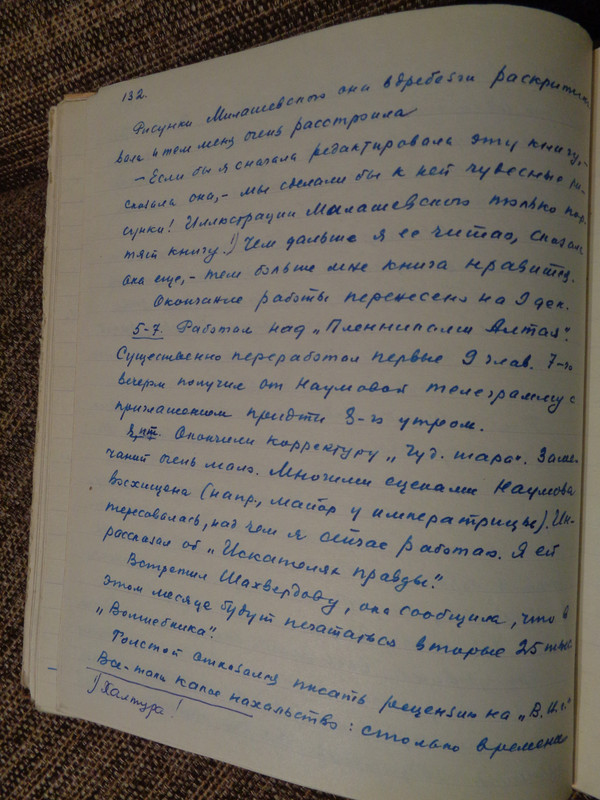 132.
Рисунки Милашевского она вдребезги раскритико-
вала и тем меня очень расстроила
– Если бы я сначала редактировала эту книгу, –
сказала она, – мы сделали бы к ней чудесные ри-
сунки! Иллюстрации Милашевского только пор-
тят книгу!) Чем дальше я ее читаю, сказала
она еще, – тем больше мне книга нравится.
Окончание работы перенесено на 9 дек.
5-7. Работал над „Пленниками Алтая".
Существенно переработал первые 9 глав. 7-го
вечером получил от Наумовой телеграмму с
приглашением придти 8-го утром.
8, пт. Окончили корректуру „Чуд. шара". Заме-
чаний очень мало. Многими сценами Наумова
восхищена (напр., майор у императрицы). Ин-
тересовалась, над чем я сейчас работаю. Я ей
рассказал об „Искателях правды."
Встретил Шахвердову, она сообщила, что в
этом месяце будут печататься вторые 25 тыс.
„Волшебника".
Толстой отказался писать рецензию на „В. И. г."
Все-таки какое нахальство: столько времени
) Халтура!